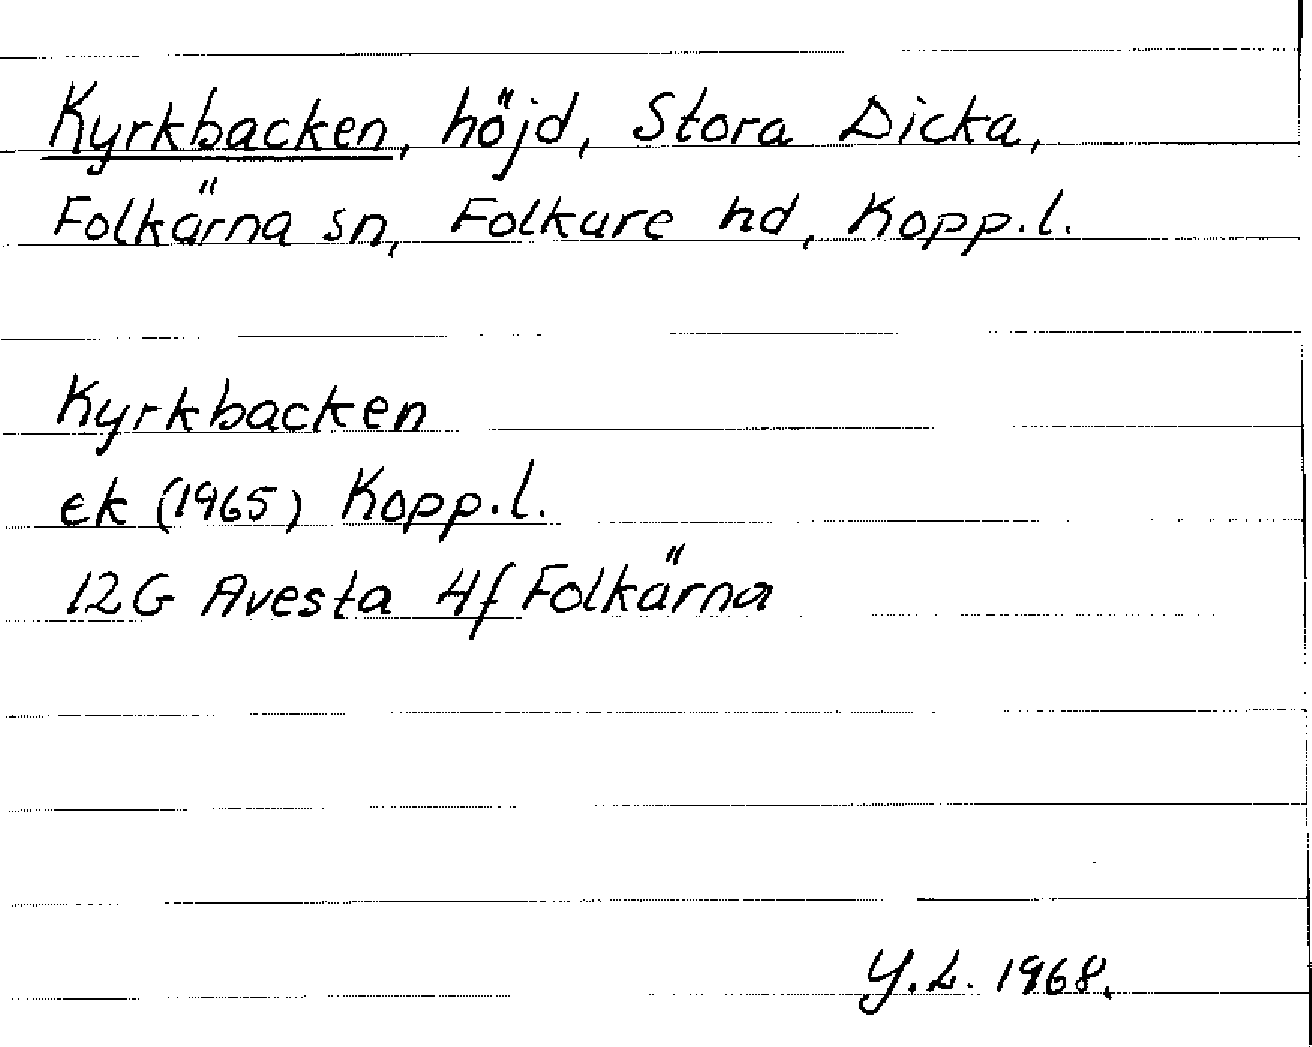 Kyrkbacken, höjd, Stora Dicka,
Folkärna sn, Folkare hd, Kopp.l.
Kyrkbacken
ek (1965) Kopp.l.
12G Avesta 4f Folkärna
Y.L. 1968.